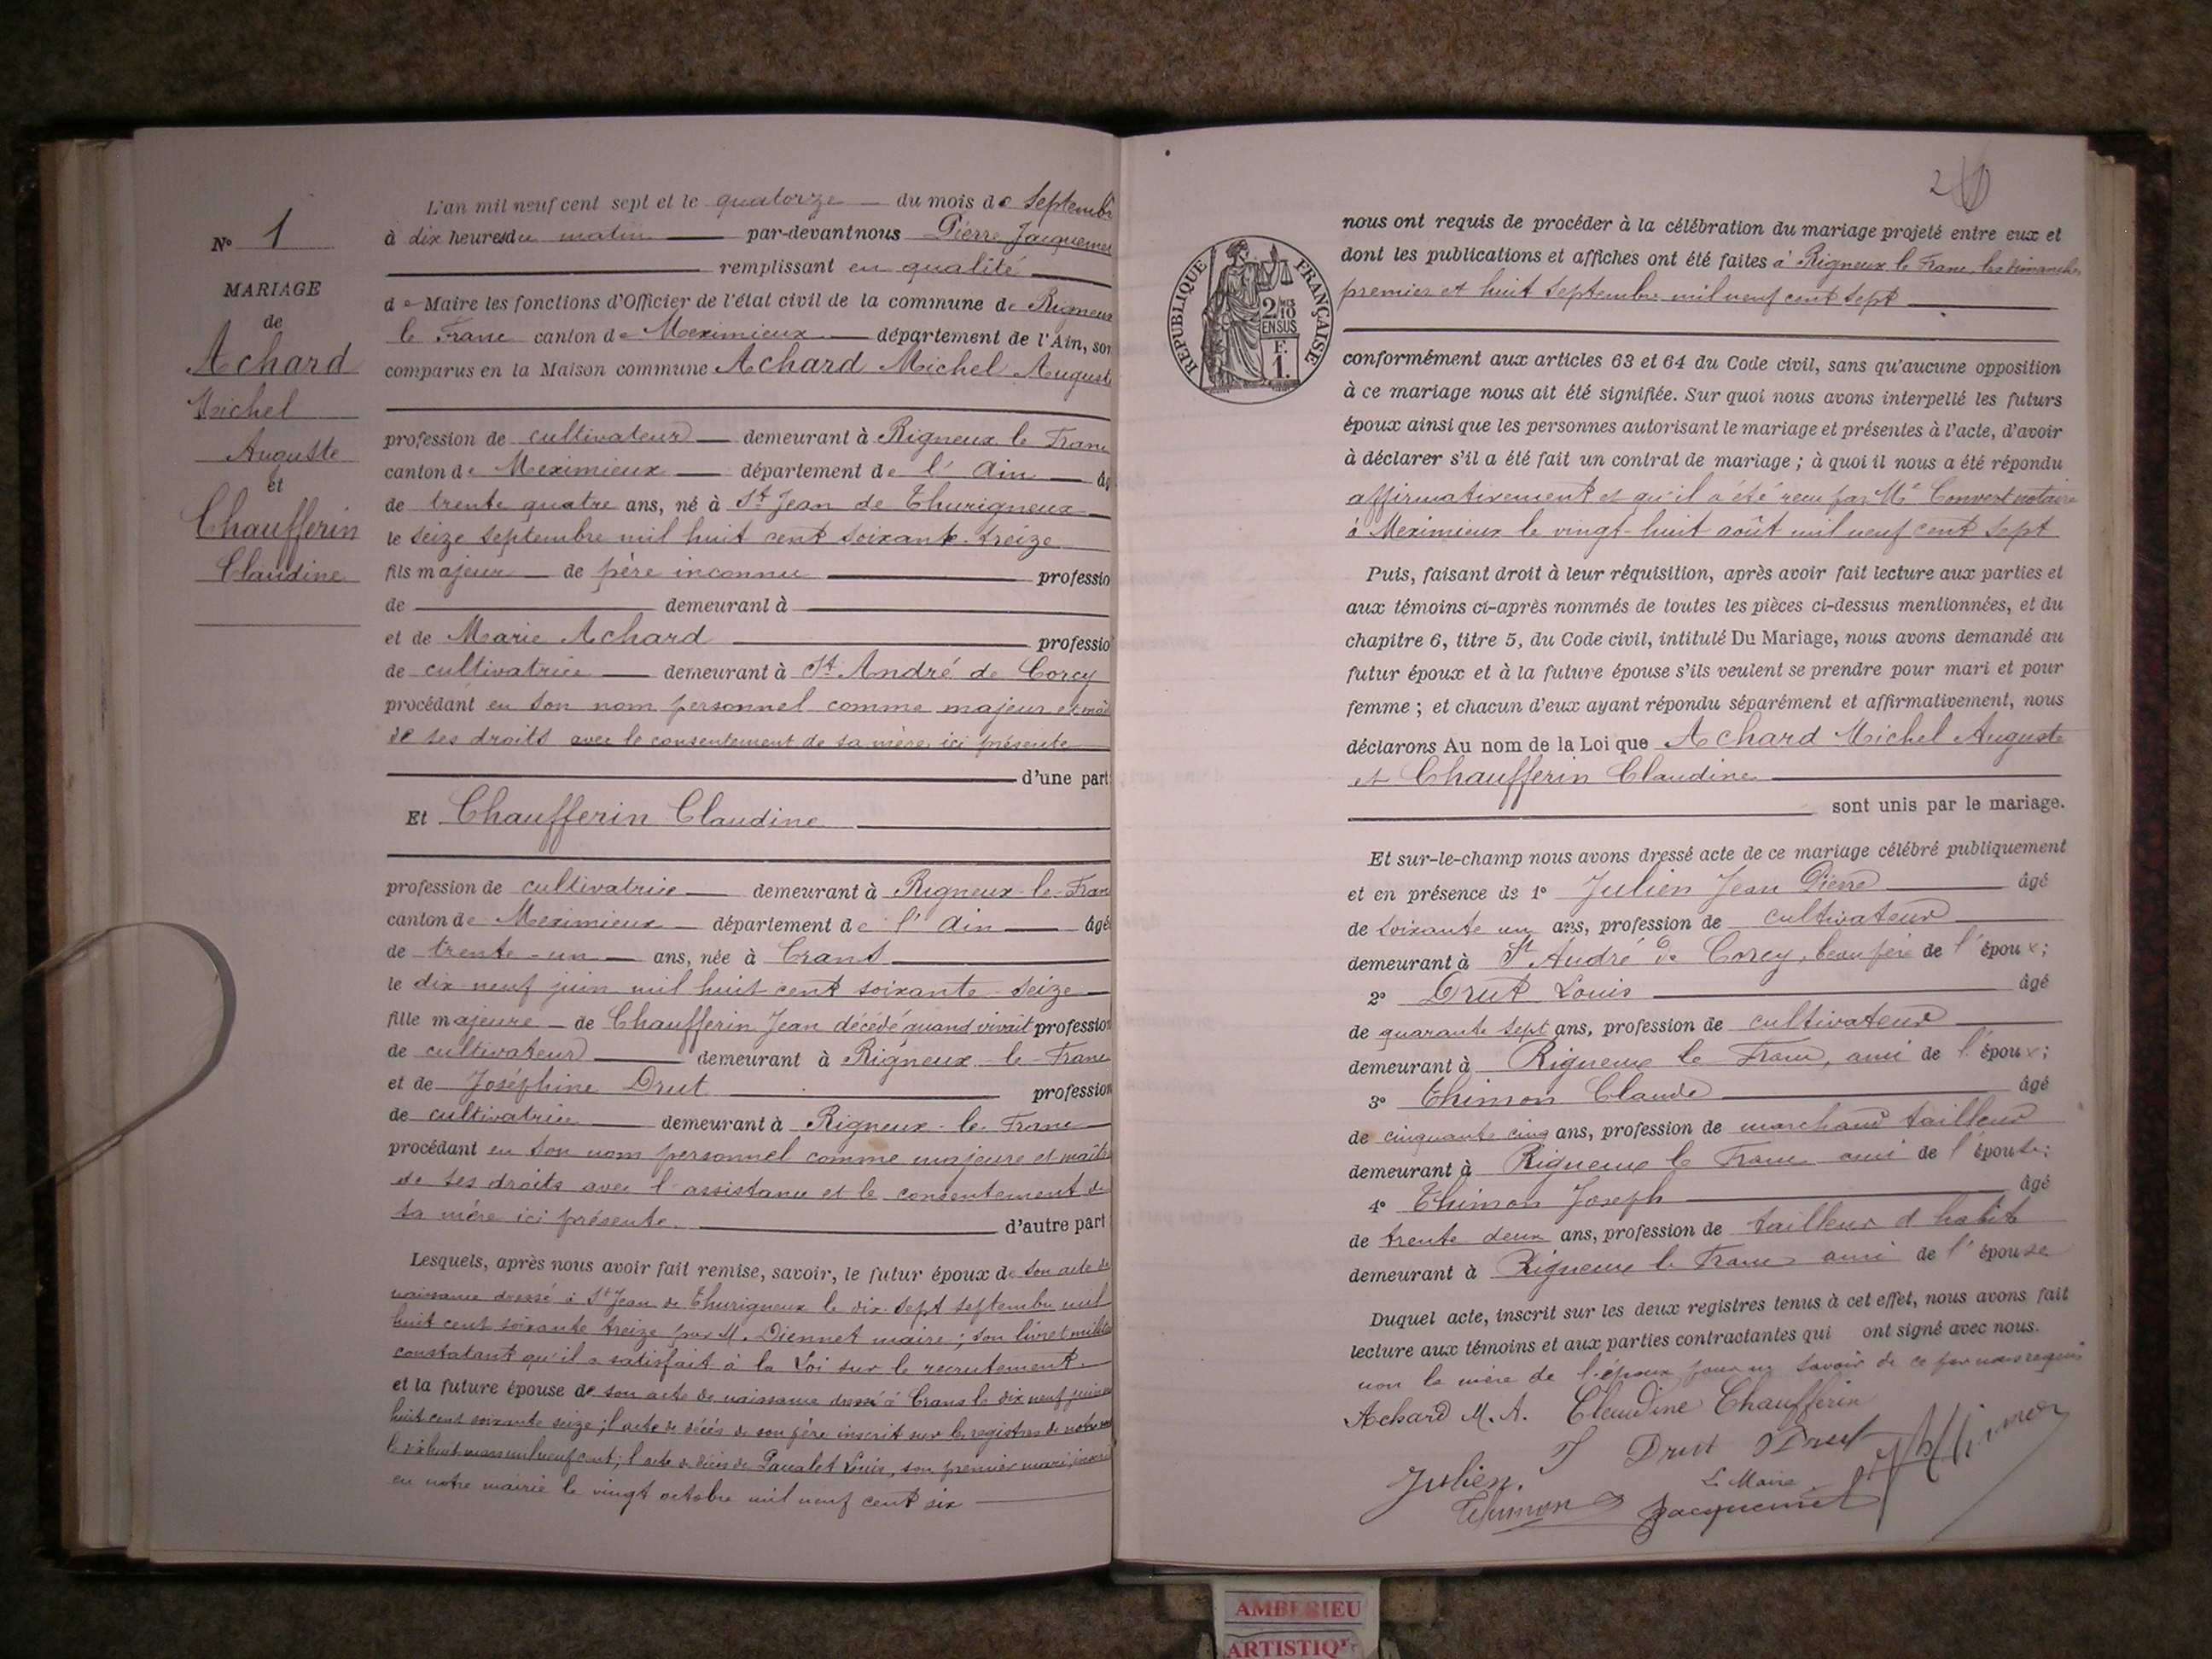 N° 1
MARIAGE
de
Achard
Michel
Auguste
et
Chaufferin
Claudine
L'an mil neuf cent sept et le quatorze du mois de Septembr
à dix heures du matin par-devant nous Pierre Jacquemet
remplissant en qualité
de Maire les fonctions d'Officier de l'état civil de la commune de Rigneux
le Franc canton de Meximieux département de l'Ain, son
comparus en la Maison commune Achard Michel Auguste
profession de cultivateur demeurant à Rigneux le Franc
canton de Meximieux département de l'Ain âg
de trente quatre ans, né à St Jean de Thurigneux
le seize septembre mil huit cent soixante-treize
fils majeur de père inconnu professio
de demeurant à
et de Marie Achard professio
de cultivatrice demeurant à St André de Corcy
procédant en son nom personnel comme majeur et maît
de ses droits avec le consentement de sa mère ici présente
d'une part
Et Chaufferin Claudine
profession de cultivatrice demeurant à Rigneux-le-Franc
canton de Meximieux département de l'Ain âgé
de trente-un ans, née à Crans
le dix-neuf juin mil huit-cent soixante-seize
fille majeure de Chaufferin Jean décédé quand vivait profession
de cultivateur demeurant à Rigneux-le-Franc
et de Joséphine Drut profession
de cultivatrice demeurant à Rigneux-le-Franc
procédant en son nom personnel comme majeure et maît
de ses droits avec l'assistance et le consentement de
sa mère ici présente. d'autre part
Lesquels, après nous avoir fait remise, savoir, le futur époux de son acte de
naissance dressé à St Jean de Thurigneux le dix-sept septembre mil
huit cent soixante treize par M. Diennet maire ; son livret milit
constatant qu'il a satisfait à la Loi sur le recrutement.
et la future épouse de son acte de naissance dressé à Crans le dix neuf juin
huit cent soixante seize ; l'acte de décès de son père inscrit sur les registres de notre
le dix huit mars mil neuf cent ; l'acte de décès de Louis, son premier mari,
en notre mairie le vingt octobre mil neuf cent six
RÉPUBLIQUE FRANÇAISE
2/10MES
EN SUS
F.
1.
nous ont requis de procéder à la célébration du mariage projeté entre eux et
dont les publications et affiches ont été faites à Rigneux le Franc, les dimanches
premier et huit Septembre mil neuf cent sept
conformément aux articles 63 et 64 du Code civil, sans qu'aucune opposition
à ce mariage nous ait été signifiée. Sur quoi nous avons interpellé les futurs
époux ainsi que les personnes autorisant le mariage et présentes à l'acte, d'avoir
à déclarer s'il a été fait un contrat de mariage ; à quoi il nous a été répondu
affirmativement et qu'il a été reçu par Me Convert notaire
à Meximieux le vingt-huit août mil neuf cent sept
Puis, faisant droit à leur réquisition, après avoir fait lecture aux parties et
aux témoins ci-après nommés de toutes les pièces ci-dessus mentionnées, et du
chapitre 6, titre 5, du Code civil, intitulé Du Mariage, nous avons demandé au
futur époux et à la future épouse s'ils veulent se prendre pour mari et pour
femme ; et chacun d'eux ayant répondu séparément et affirmativement, nous
déclarons Au nom de la Loi que Achard Michel Auguste
et Chaufferin Claudine
sont unis par le mariage.
Et sur-le-champ nous avons dressé acte de ce mariage célébré publiquement
et en présence de 1° Julien Jean Pierre âgé
de soixante un ans, profession de cultivateur
demeurant à St André de Corcy, beau père de l'époux ;
2° Drut Louis âgé
de quarante sept ans, profession de cultivateur
demeurant à Rigneux le Franc, ami de l'époux ;
3° Thimon Claude âgé
de cinquante cinq ans, profession de marchand tailleur
demeurant à Rigneux le Franc ami de l'épouse ;
4° Thimon Joseph âgé
de trente deux ans, profession de tailleur d'habits
demeurant à Rigneux le Franc ami de l'épouse
Duquel acte, inscrit sur les deux registres tenus à cet effet, nous avons fait
lecture aux témoins et aux parties contractantes qui ont signé avec nous.
non la mère de l'époux pour ne savoir de ce par nous requis
Achard M. A. Claudine Chaufferin
J Drut Drut
Julien. Le Maire
Thimon Jacquemet
AMBERIEU
ARTISTIQUE